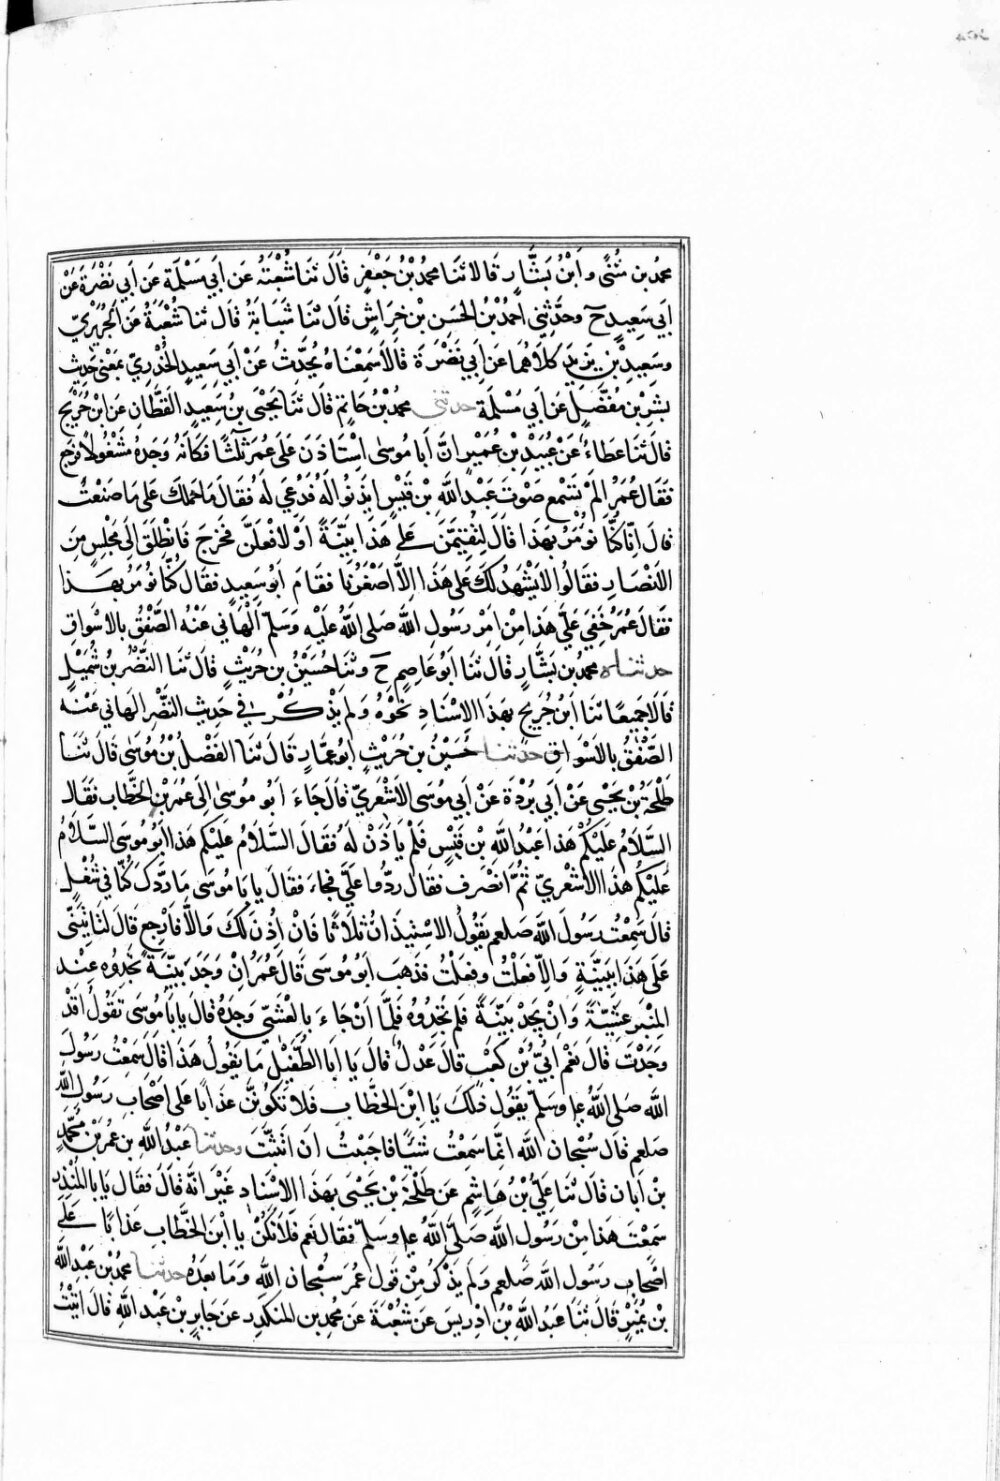 محمد بن مثنى وابْنُ بَشَّارٍ قَالَا ثَنَا محمدُ بْنُ جَعْفَرٍ قَالَ ثَنَا شُعْبَةُ عَن أَبِي مَسْلَمَةَ عَن أَبي نَضْرَةَ عَنْ
أَبِي سَعِيدٍ ح وحَدَّثَنِي أحمدُ بْنُ الحَسِنِ بْنِ خِرَاشٍ قَالَ ثَنَا شَبَابَةُ قَالَ ثنا شُعْبَةُ عَنِ الجُرَيْرِيّ
وسَعِيدِ بْنِ يَزِيدَ كِلَاهُمَا عَن اَبِي نَضْرَةَ قَالَا سَمِعْنَاهُ يُحَدِّثُ عَنْ أَبِي سَعِيدٍ الخُدْرِيّ بمَعْنى حَدِيثِ
بِشْرِ بْنِ مُفَضَّلٍ عَن اَبي مَسْلَمَةَ حدثنى محمدُ بْنُ حَاتِمٍ قَالَ ثَنَا يَحْيَى بنُ سَعِيدٍ القَطَّانِ عَنِ ابْنِ جُرَيْجٍ
قَالَ ثَنَا عَطَاءٌ عَنْ عُبَيْدِ بْنِ عُمَيْرٍ انَّ أبَا مُوسى اسْتَاذَنَ عَلَى عُمَرَ ثلٰثًا فكَأَنهُ وَجَدَهُ مَشْغُولًا فَرَجَع
فَقَالَ عُمَرُ الَمْ تَسْمَعْ صَوْتَ عَبْدِ اللّٰهِ بْنِ قَيْسٍ ايذَنُوا لَهُ فَدُعِيَ لَهُ فَقَالَ مَا حَمَلَكَ عَلَى مَا صَنَعْتَ
قَالَ اِنَّا كُنَّا نُومَرُ بهَذَا قَالَ لتُقِيْمَنَّ عَلَى هَذَا بَيِّنَةً أوْ لَافْعَلَنَّ فَخَرَجَ فَانْطَلَقَ اِلَى مَجْلِسٍ مِنَ
الَانْصَارِ فَقَالُوا لَا يَشْهَدُ لَكَ عَلى هَذَا اِلَّا اَصْغَرُنَا فقَامَ ابُو سَعِيدٍ فقَالَ كُنَّا نُومَرُ بهَذا
فَقَالَ عُمَرُ خَفِيَ عَلَيَّ هَذا مِنْ امْرِ رَسُولِ اللّٰهِ صَلَى اللّٰهُ عَلَيْهِ وَسَلَّمَ أَلْهَانِي عَنْهُ الصَّفْقُ بالاَسْوَاقِ
حدثناه محمدُ بن بَشَّارٍ قَالَ ثَنَا ابُو عَاصِمٍ ح وثَنَا حُسَيْنُ بن حُرَيْثٍ قالَ ثَنَا النَّضْرُ بنُ شُمَيْلٍ
قَالَا جَمِيعًا ثنا ابْنُ جُرَيْجٍ بهَذَا الاِسْنَادِ نحْوَهُ وَلَمْ يَذْكُرْ فِي حَدِيثِ النَّضْرِ الهَانِي عَنْهُ
الصَّفْقُ بالاَسْوَاقِ حدثنا حُسَيْنُ بن حُرَيْثٍ ابُو عمَّارٍ قَالَ ثَنَا الفَضْلُ بْنُ مُوسَى قَالَ ثَنَا
طَلْحَةُ بْنُ يَحْيَى عَنْ أَبي بُرْدَةَ عَنْ أَبِي مُوسَى الاَشْعَرِيّ قَالَ جَاءَ ابُو مُوسَى اِلَى عُمَرَ بْنِ الخَطَّابِ فَقَالَ
السَّلَامُ عَلَيْكُمْ هَذَا عَبْدُ اللّٰهِ بْن قَيْسٍ فَلَمْ يَاذَنْ لَهُ فقَالَ السَّلَامُ عَلَيْكُم هَذا ابُو مُوسَى السَّلَامُ
عَلَيْكُم هَذَا الاَشْعَرِيّ ثُمَّ انْصَرَفَ فقَالَ رُدُّوا عَلَيَّ فجَاءَ فقَالَ يا بَا مُوسَى مَا رَدَّكَ كُنَّا فِي شُغْلٍ
قالَ سَمِعْتُ رَسُولَ اللّٰهِ صَلعم يَقُولُ الاسْتِيذَانُ ثلَاثًا فَانْ اُذِنَ لَكَ وَالَّا فَارْجِع قَالَ لتَاتِيَنِّى
عَلَى هَذَا بِبَيِّنَةٍ وَاِلّا فَعَلْتُ وفَعَلْتُ فذَهَبَ ابُو مُوسَى قَالَ عُمَرُ اِنْ وَجَدَ بَيِّنَةً تَجِدُوه عِنْدَ
المِنْبَرِ عَشِيَّةً وَاِنْ لم يَجِدْ بَيِّنَةً فَلَم تَجِدُوهُ فَلَمَّا اَنْ جَاءَ بالعَشِيّ وَجَدَهُ قَالَ يا بَا مُوسَى مَا تَقُولُ اَقَدْ
وَجَدْتَ قَالَ نَعَمْ اُبَيُّ بْنُ كَعْبٍ قَالَ عَدْلٌ قَالَ يَا ابَا الطُّفَيْلِ مَا يَقُولُ هَذَا قَالَ سَمِعْتُ رَسُولَ
اللّٰهِ صَلى اللّٰهُ عليه وسَلَّم يَقُول ذَلكَ يَا ابْنَ الخَطَّابِ فَلَا تَكُونَنَّ عَذَابًا عَلَى اَصْحَابِ رَسُولِ اللّٰهِ
صلعم قَالَ سُبْحَانَ اللّٰهِ اِنَّمَا سَمِعْتُ شَيْئًا فَاحْبَبْتُ انَ اتَثَبَّتَ وحدثنا عَبْدُ اللّٰهِ بن عُمَرَ بْنِ مُحَمَّدِ
بْنِ اَبَانٍ قَالَ ثَنَا عَلِيُّ بْنُ هَاشِمٍ عَن طَلْحَةَ بْنِ يَحْيَى بهَذَا الاِسْنَادِ غَيْرَ انَّهُ قَالَ فقَالَ يَا بَا المُنْذِرِ
سَمِعْتَ هَذا مِنْ رَسُولِ اللّٰهِ صَلَّى اللّٰهُ عليه وسَلَّم فَقَالَ نَعَم فَلَا تَكُنْ يا ابْنَ الخَطَّابِ عَذابًا عَلَى
اصْحَابِ رَسُولِ اللّٰهِ صَلعم وَلَمْ يَذْكُرْ مِنْ قَوْلِ عُمَرَ سبْحَانَ اللّٰهِ وَمَا بَعْدَهُ حدثنا محمدُ بْن عَبْدِ اللّٰهِ
بْنِ نُمَيْرٍ قَالَ ثَنَا عَبْدُ اللّٰهِ بْنُ ادْرِيسَ عَن شُعْبَةَ عَنْ محمدِ بن المُنْكَدِرِ عَنْ جَابِرِ بْنِ عَبْدِ اللّٰهِ قَالَ اَتَيْتُ